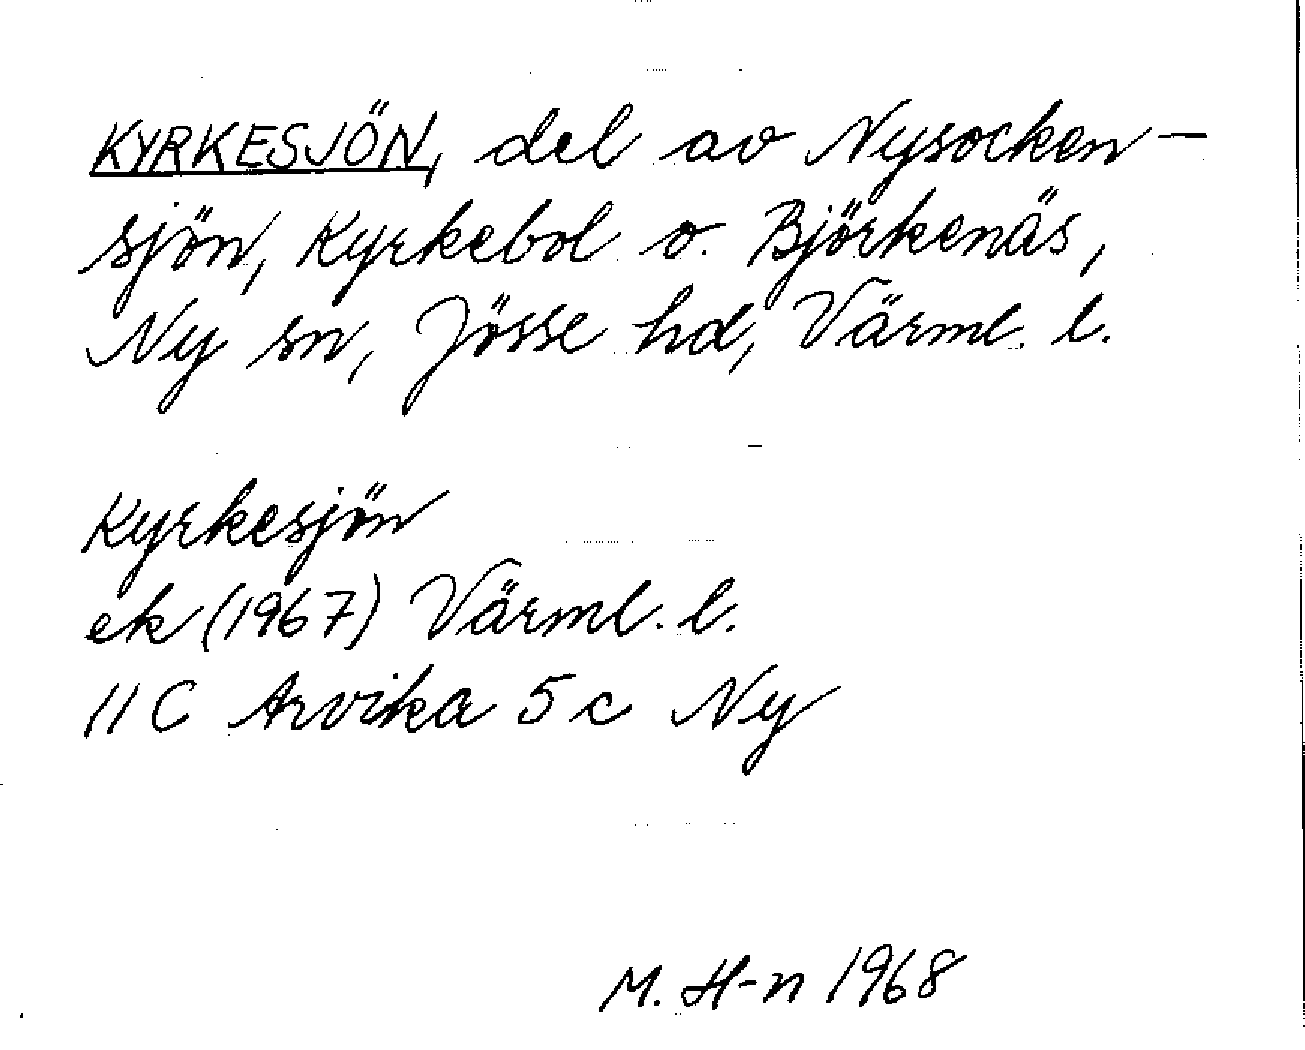 KYRKESJÖN, del av Nysocken-
sjön, Kyrkebol o. Björkenäs,
Ny sn, Jösse hd, Värml. l.
Kyrkesjön
ek (1967) Värml. l.
11 C Arvika 5 c Ny
M. H-n 1968